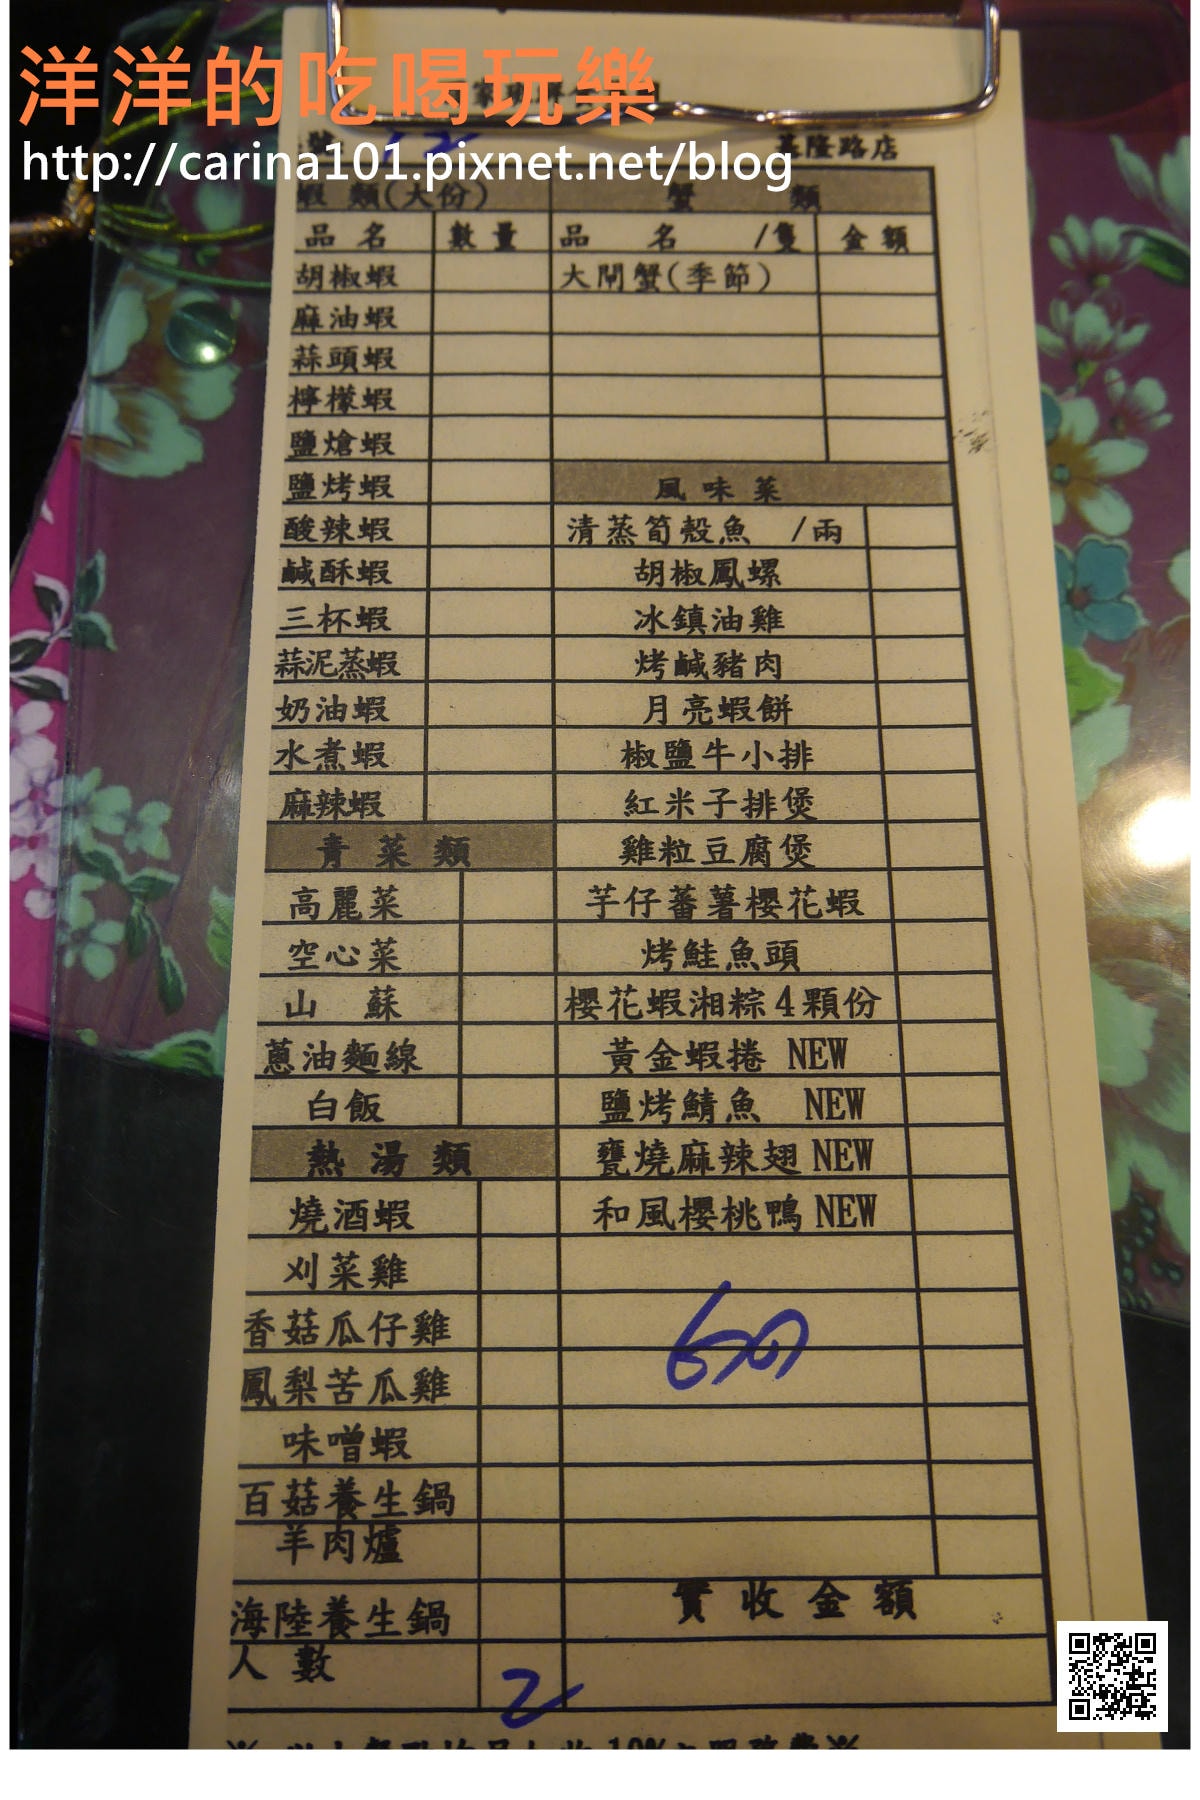 洋洋的吃喝玩樂
http://carina101.pixnet.net/blog
基隆路店
蝦 類(大份) 蟹 類
品 名 數 量 品 名 /隻 金 額
胡椒蝦 大閘蟹(季節)
麻油蝦
蒜頭蝦
檸檬蝦
鹽熗蝦
鹽烤蝦 風 味 菜
酸辣蝦 清蒸筍殼魚 /兩
鹹酥蝦 胡椒鳳螺
三杯蝦 冰鎮油雞
蒜泥蒸蝦 烤鹹豬肉
奶油蝦 月亮蝦餅
水煮蝦 椒鹽牛小排
麻辣蝦 紅米子排煲
青 菜 類 雞粒豆腐煲
高麗菜 芋仔蕃薯櫻花蝦
空心菜 烤鮭魚頭
山 蘇 櫻花蝦湘粽4顆份
蔥油麵線 黃金蝦捲 NEW
白飯 鹽烤鯖魚 NEW
熱 湯 類 甕燒麻辣翅 NEW
燒酒蝦 和風櫻桃鴨 NEW
刈菜雞
香菇瓜仔雞
鳳梨苦瓜雞
味噌蝦
百菇養生鍋
羊肉爐
海陸養生鍋 實 收 金 額
人 數 2